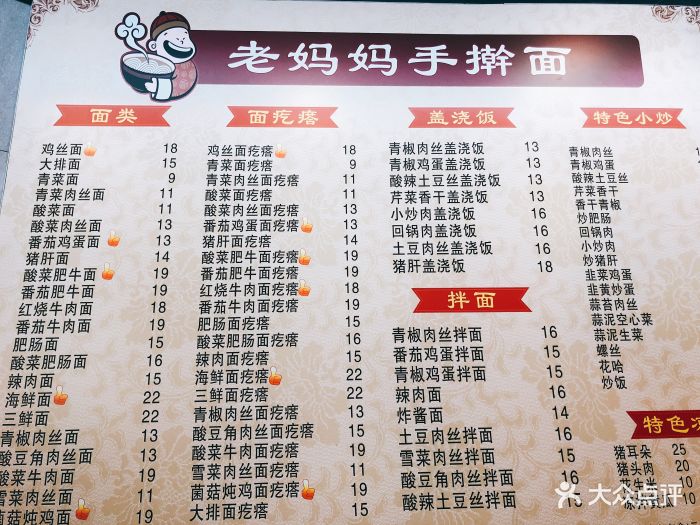 老妈妈手擀面
面类
鸡丝面 18
大排面 15
青菜面 9
青菜肉丝面 11
酸菜面 11
酸菜肉丝面 13
番茄鸡蛋面 13
猪肝面 14
酸菜肥牛面 19
番茄肥牛面 19
红烧牛肉面 19
番茄牛肉面 19
肥肠面 15
酸菜肥肠面 16
辣肉面 15
海鲜面 22
三鲜面 22
青椒肉丝面 13
酸豆角肉丝面 13
酸菜牛肉面 19
雪菜肉丝面 11
菌菇炖鸡面 19
面疙瘩
鸡丝面疙瘩 18
青菜面疙瘩 9
青菜肉丝面疙瘩 11
酸菜面疙瘩 11
酸菜肉丝面疙瘩 13
番茄鸡蛋面疙瘩 13
猪肝面疙瘩 14
酸菜肥牛面疙瘩 19
番茄肥牛面疙瘩 19
红烧牛肉面疙瘩 19
番茄牛肉面疙瘩 19
肥肠面疙瘩 15
酸菜肥肠面疙瘩 16
辣肉面疙瘩 15
海鲜面疙瘩 22
三鲜面疙瘩 22
青椒肉丝面疙瘩 13
酸豆角肉丝面疙瘩 15
酸菜牛肉面疙瘩 19
雪菜肉丝面疙瘩 11
菌菇炖鸡面疙瘩 19
大排面疙瘩 15
盖浇饭
青椒肉丝盖浇饭 13
青椒鸡蛋盖浇饭 13
酸辣土豆丝盖浇饭 13
芹菜香干盖浇饭 13
小炒肉盖浇饭 16
回锅肉盖浇饭 16
土豆肉丝盖浇饭 16
猪肝盖浇饭 18
拌面
青椒肉丝拌面 16
番茄鸡蛋拌面 15
青椒鸡蛋拌面 15
辣肉面 16
炸酱面 14
土豆肉丝拌面 16
雪菜肉丝拌面 15
酸豆角肉丝拌面 16
酸辣土豆丝拌面 15
特色小炒
青椒肉丝
青椒鸡蛋
酸辣土豆丝
芹菜香干
香干青椒
炒肥肠
回锅肉
小炒肉
炒猪肝
韭菜鸡蛋
韭黄炒蛋
蒜苔肉丝
蒜泥空心菜
蒜泥生菜
螺丝
花哈
炒饭
特色
猪耳朵 25
猪头肉 20
花生米 10
大众点评